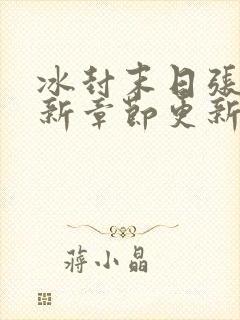 冰封末日張
新章節更新
蔣小晶